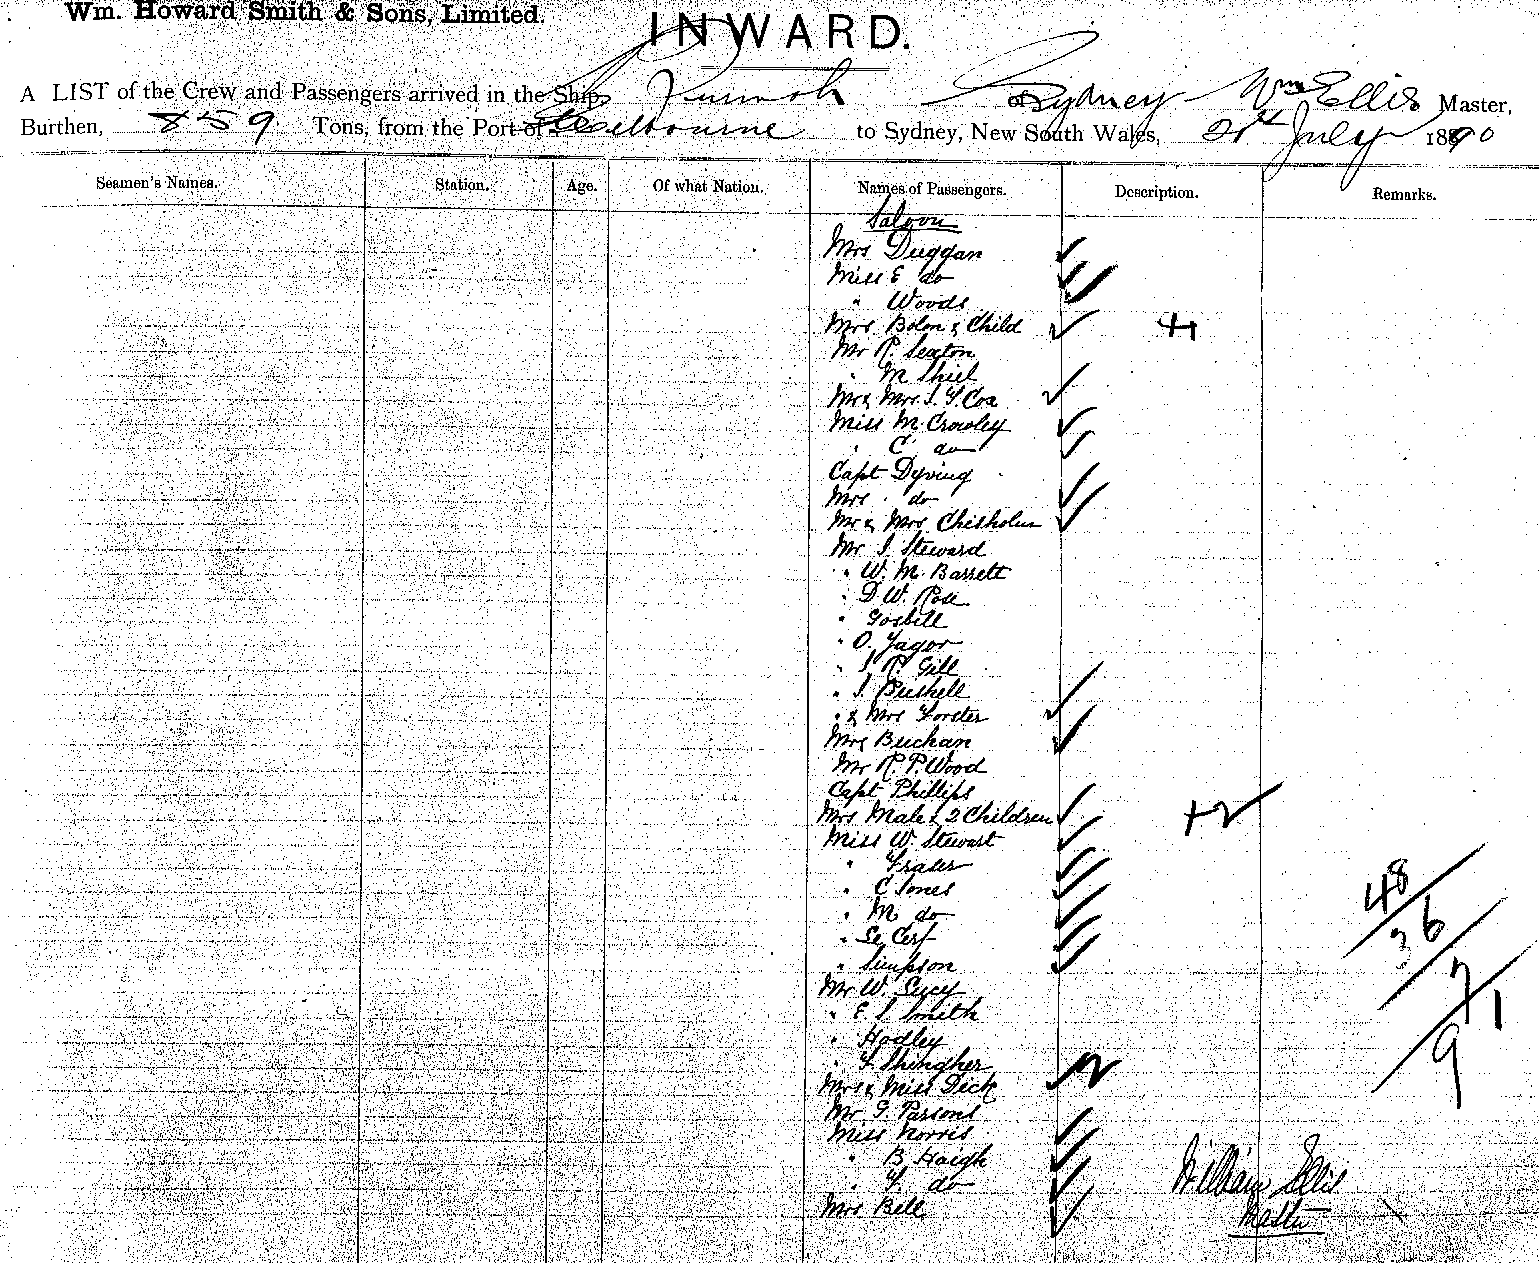 Wm. Howard Smith & Sons, Limited.
INWARD.
A LIST of the Crew and Passengers arrived in the Ship of Sydney Wm Ellis Master,
Burthen, 859 Tons, from the Port of Melbourne to Sydney, New South Wales, 21st July 1890
Seamen's Names. Station. Age. Of what Nation. Names of Passengers. Description. Remarks.
Saloon
Mrs Duggan
Miss E do
" Woods
Mrs Bolon & Child +1
Mr R. Seaton
" M Shiel
Mr & Mrs. Cox
Miss M Crowley
" C do
Capt Dyving
Mrs do
Mr & Mrs Chisholm
Mr J Steward
" W. M. Barrett
" D W. Rose
" Gosbell
" O. Jagor
" J R. Gill
" J. Bushell
" & Mrs Forster
Mrs Buchan
Mr R. P. Wood
Capt Phillips
Mrs Male & 2 Children +2
Miss W. Stewart
" Fraser
" C Jones
48
" M do
36
" Le Cerf
" Simpson
7
Mr W. Lucy
1
" E J Smith
" Hadley
9
" Shingher
Mrs & Miss Dick 2
Mr G Parsons
Miss Norris
" B Haigh
William Ellis
" F. do
Mrs Bell
Master